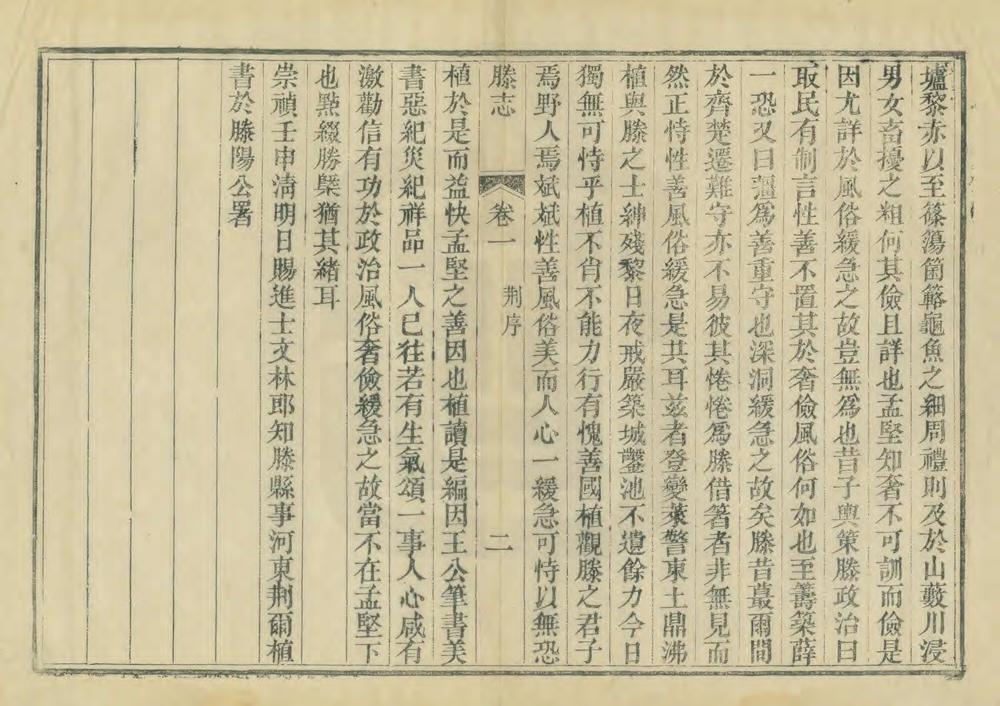 壚黎赤以至篠簜箘簵龜魚之細周禮則及於山藪川浸
男女畜擾之粗何其儉且詳也孟堅知奢不可訓而儉是
因尤詳於風俗緩急之故豈無爲也昔子輿策滕政治曰
取民有制言性善不置其於奢儉風俗何如也至籌築薛
一恐又曰彊爲善重守也深洞緩急之故矣滕昔蕞爾間
於齊楚遷難守亦不易彼其惓惓爲滕借箸者非無見而
然正恃性善風俗緩急是共耳茲者登變萊警東土鼎沸
植與滕之士紳殘黎日夜戒嚴築城鑿池不遺餘力今日
獨無可恃乎植不肖不能力行有愧善國植觀滕之君子
焉野人焉斌斌性善風俗美而人心一緩急可恃以無恐
滕志 卷一 荆序 二
植於是而益快孟堅之善因也植讀是編因王公筆書美
書惡紀災紀祥品一人已往若有生氣頌一事人心咸有
激勸信有功於政治風俗奢儉緩急之故當不在孟堅下
也點綴勝槩猶其緒耳
崇禎壬申清明日賜進士文林郎知滕縣事河東荆爾植
書於滕陽公署